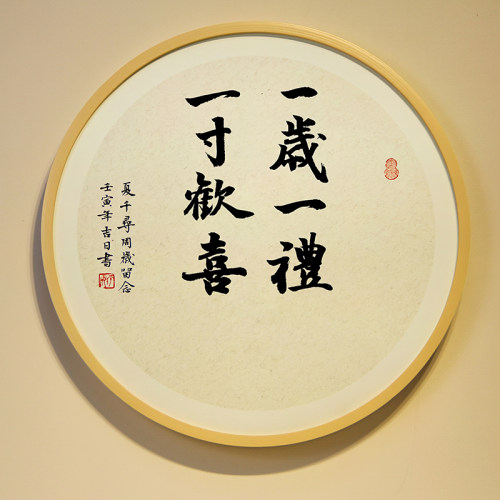 一歲一禮
一寸歡喜
夏千尋周歲留念
壬寅年吉日書